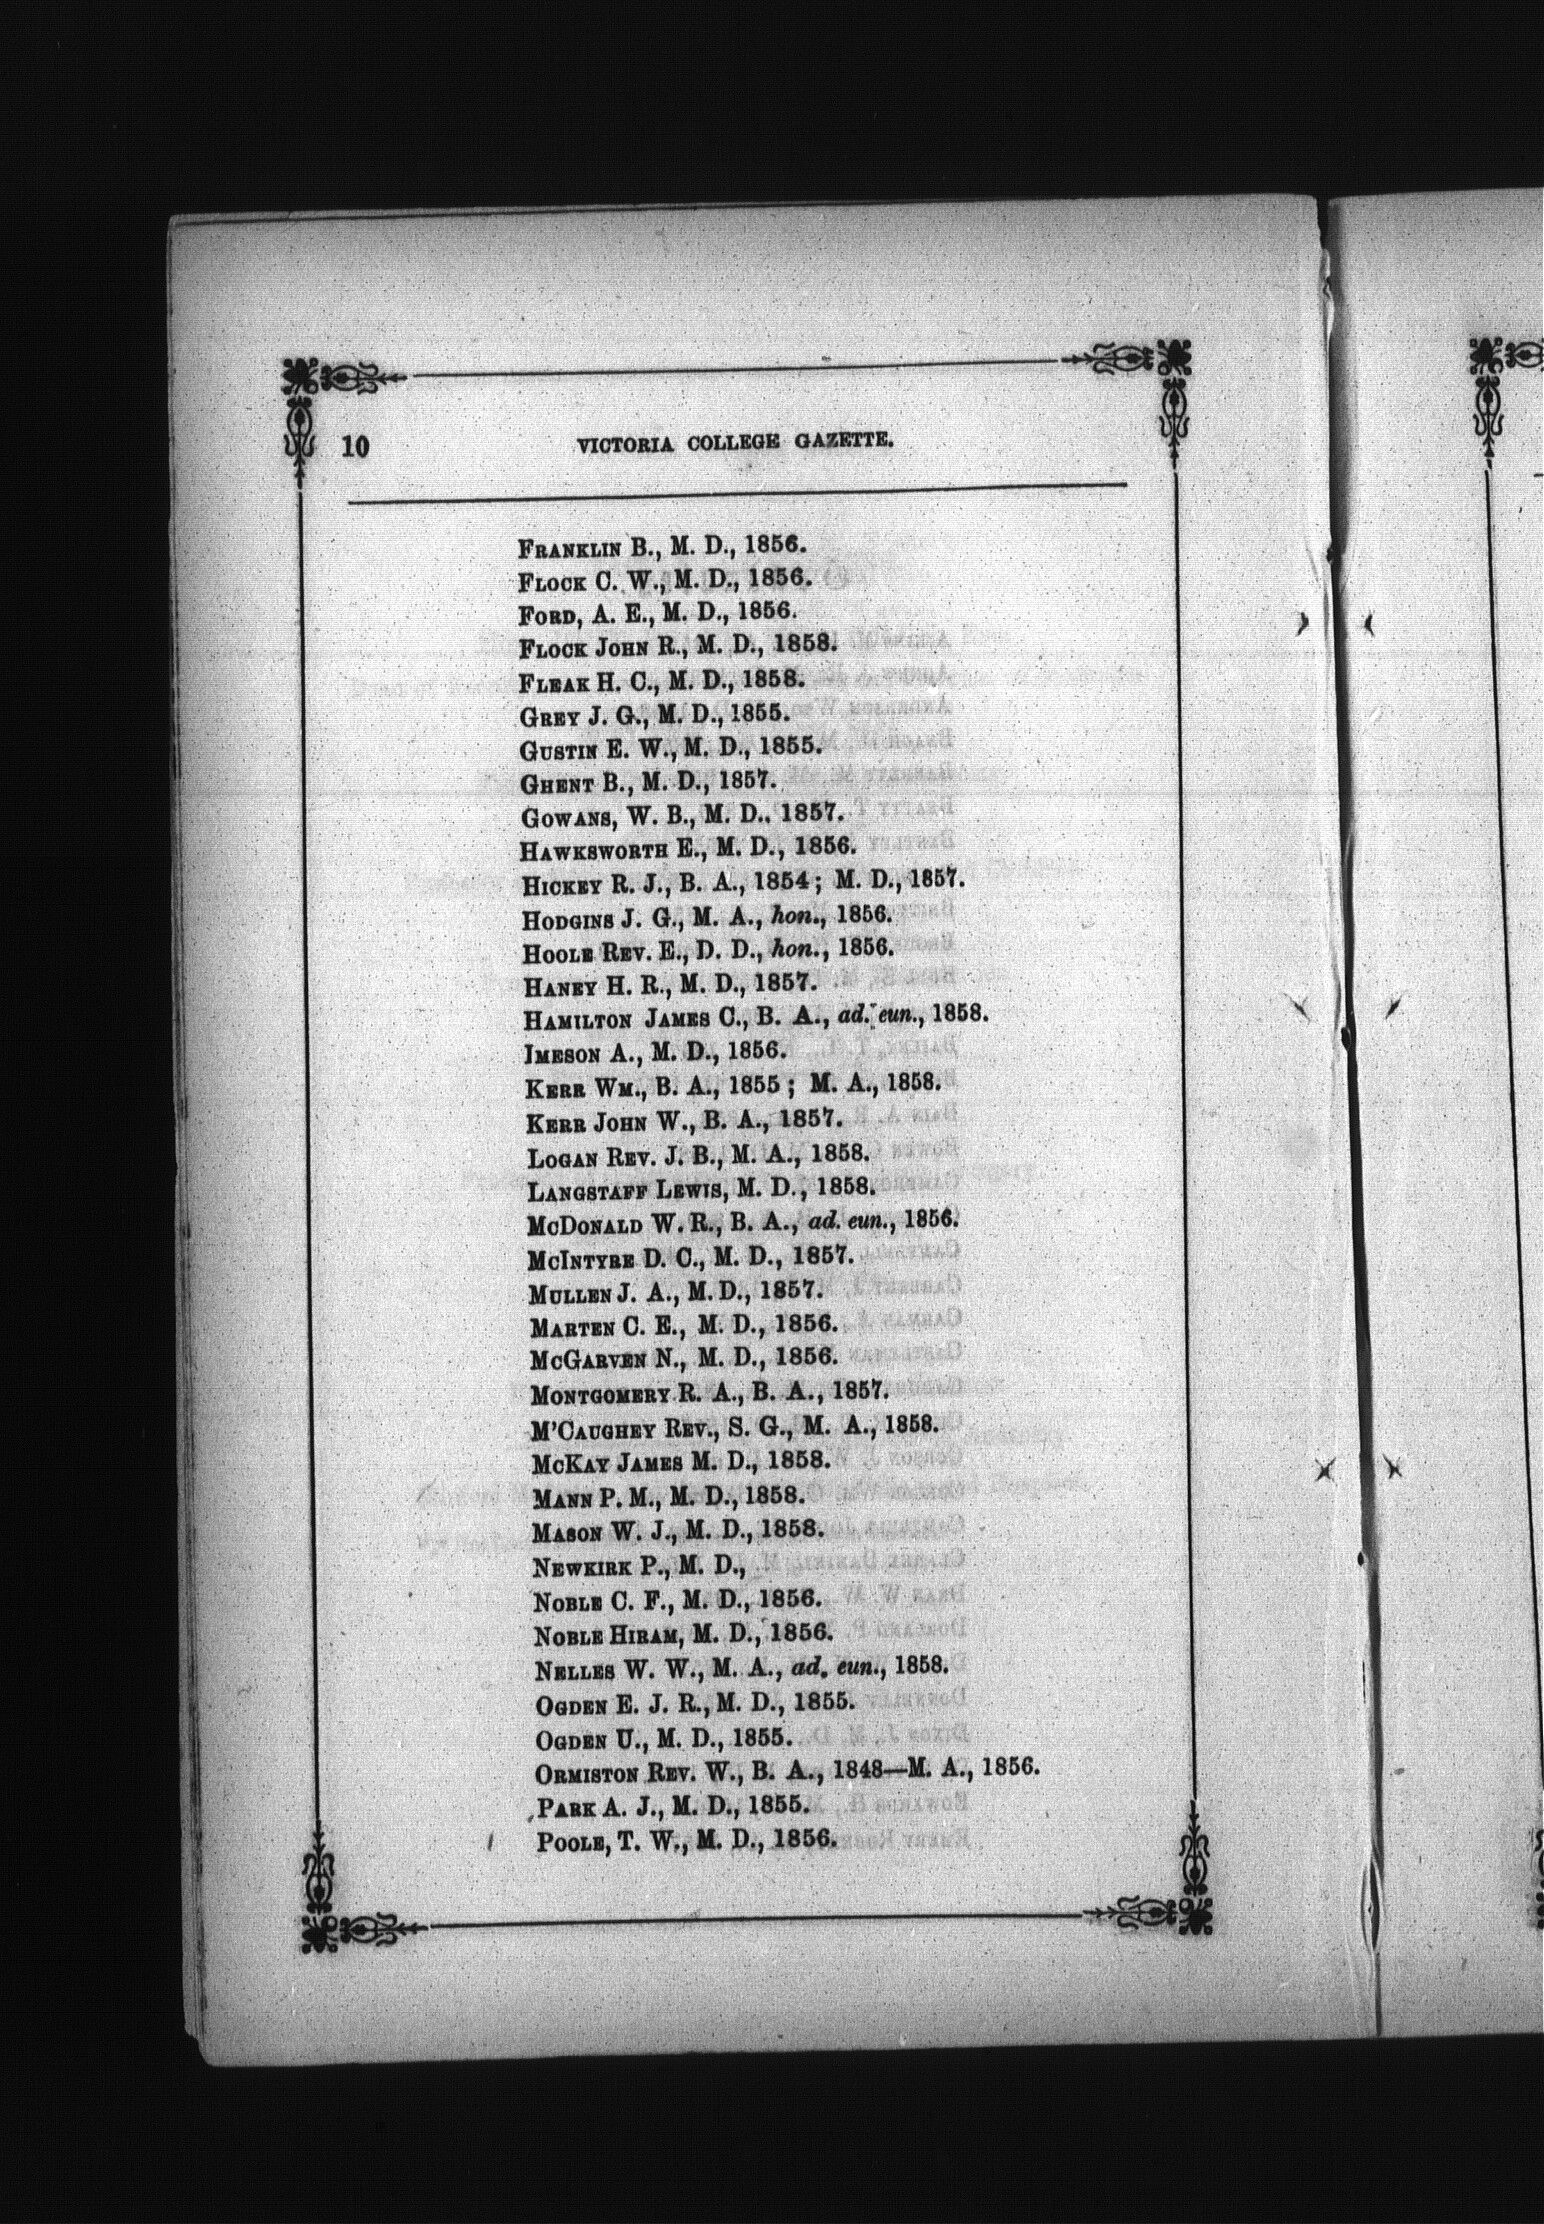 10
VICTORIA COLLEGE GAZETTE.
FRANKLIN B., M. D., 1856.
FLOCK C. W., M. D., 1856.
FORD, A. E., M. D., 1856.
FLOCK JOHN R., M. D., 1858.
FLEAK H. C., M. D., 1858.
GREY J. G., M. D., 1855.
GUSTIN E. W., M. D., 1855.
GHENT B., M. D., 1857.
GOWANS, W. B., M. D.. 1857.
HAWKSWORTH E., M. D., 1856.
HICKEY R. J., B. A., 1854; M. D., 1857.
HODGINS J. G., M. A., hon., 1856.
HOOLE REV. E., D. D., hon., 1856.
HANEY H. R., M. D., 1857.
HAMILTON JAMES C., B. A., ad. eun., 1858.
IMESON A., M. D., 1856.
KERR WM., B. A., 1855; M. A., 1858.
KERR JOHN W., B. A., 1857.
LOGAN REV. J. B., M. A., 1858.
LANGSTAFF LEWIS, M. D., 1858.
MCDONALD W. R., B. A., ad. eun., 1856.
MCINTYRE D. C., M. D., 1857.
MULLEN J. A., M. D., 1857.
MARTEN C. E., M. D., 1856.
MCGARVEN N., M. D., 1856.
MONTGOMERY R. A., B. A., 1857.
M'CAUGHEY REV., S. G., M. A., 1858.
MCKAY JAMES M. D., 1858.
MANN P. M., M. D., 1858.
MASON W. J., M. D., 1858.
NEWKIRK P., M. D.,
NOBLE C. F., M. D., 1856.
NOBLE HIRAM, M. D., 1856.
NELLES W. W., M. A., ad. eun., 1858.
OGDEN E. J. R., M. D., 1855.
OGDEN U., M. D., 1855.
ORMISTON REV. W., B. A., 1848—M. A., 1856.
PARK A. J., M. D., 1855.
POOLE, T. W., M. D., 1856.